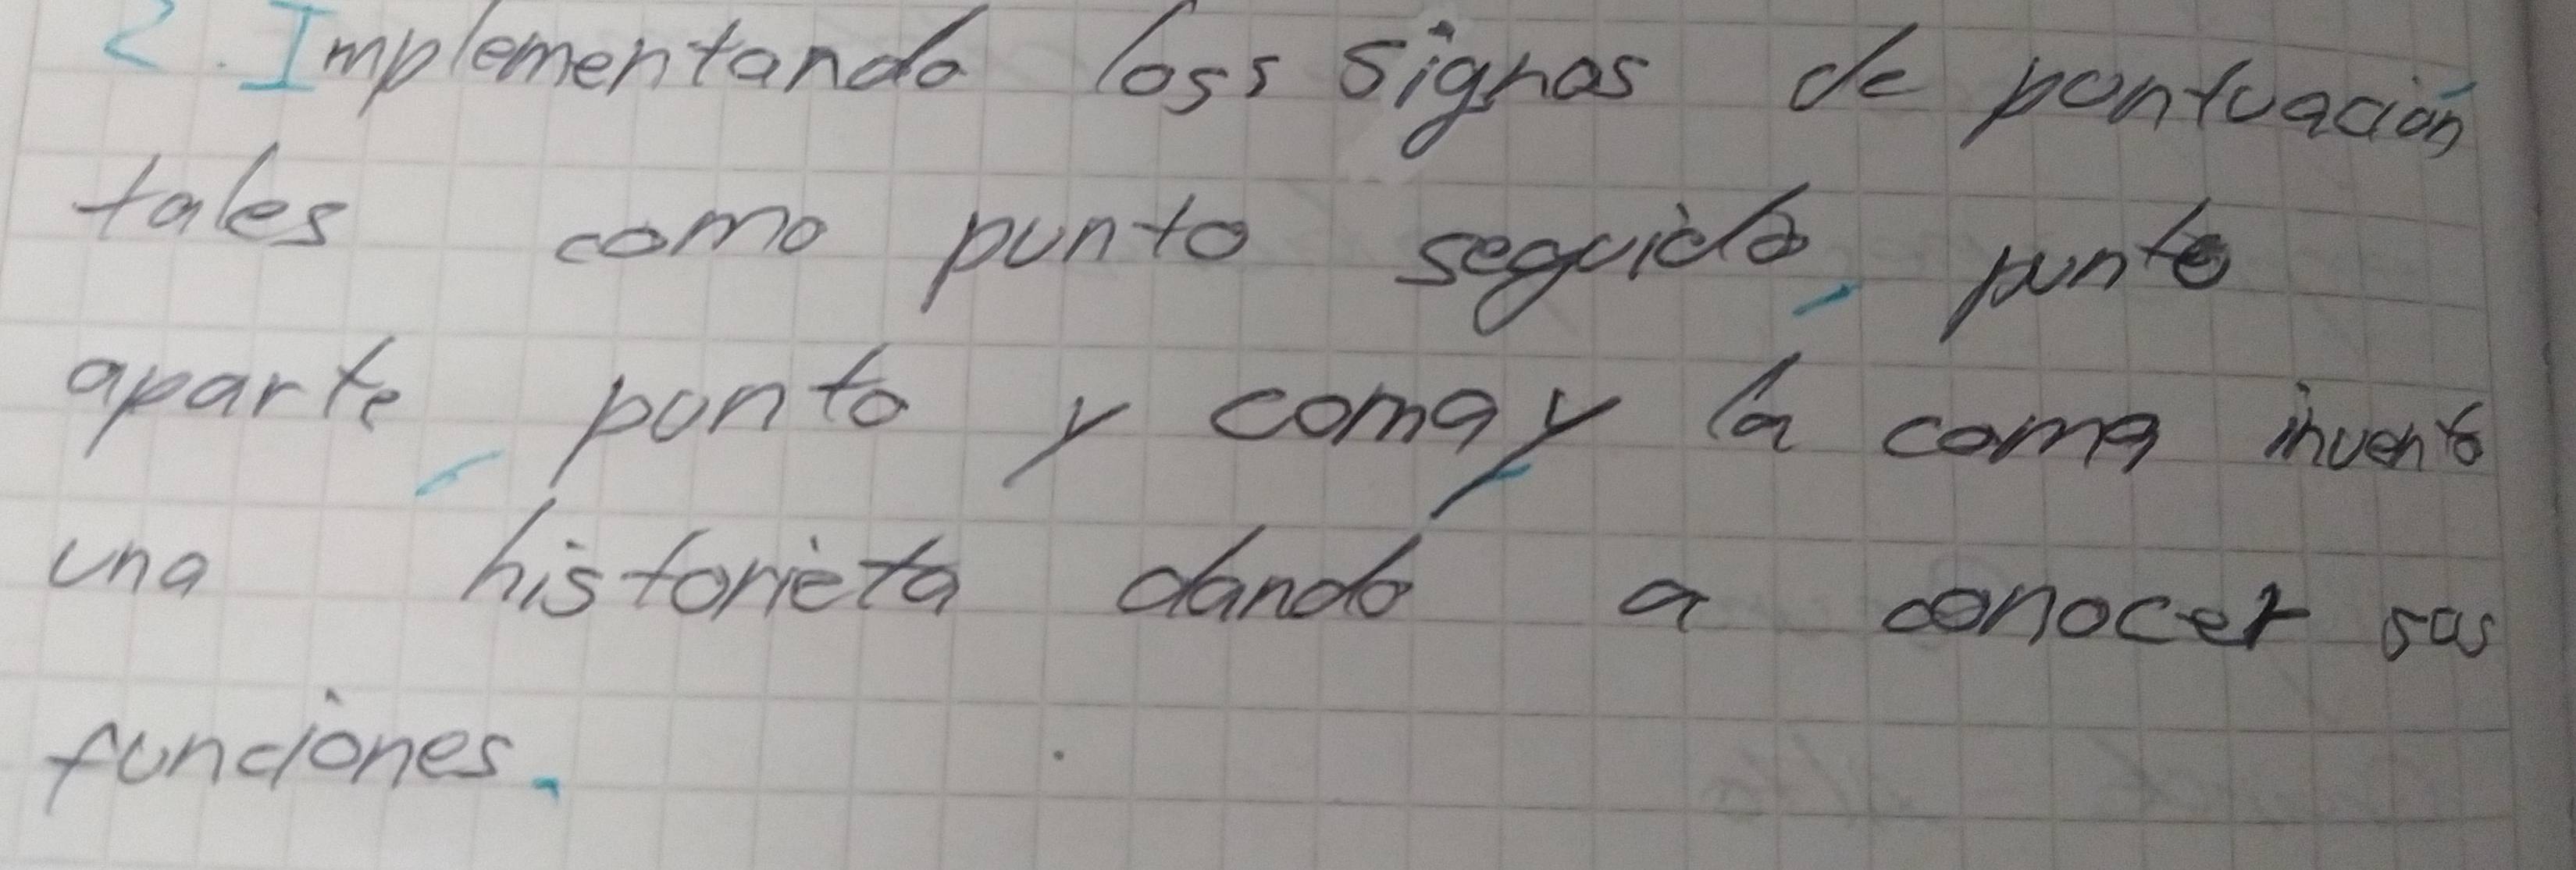 2. Implementando loss signos de pontuación
tales como punto seguido, punto
aparte, ponto y coma y la coma invento
una historieta dando a conocer sus
funciones.